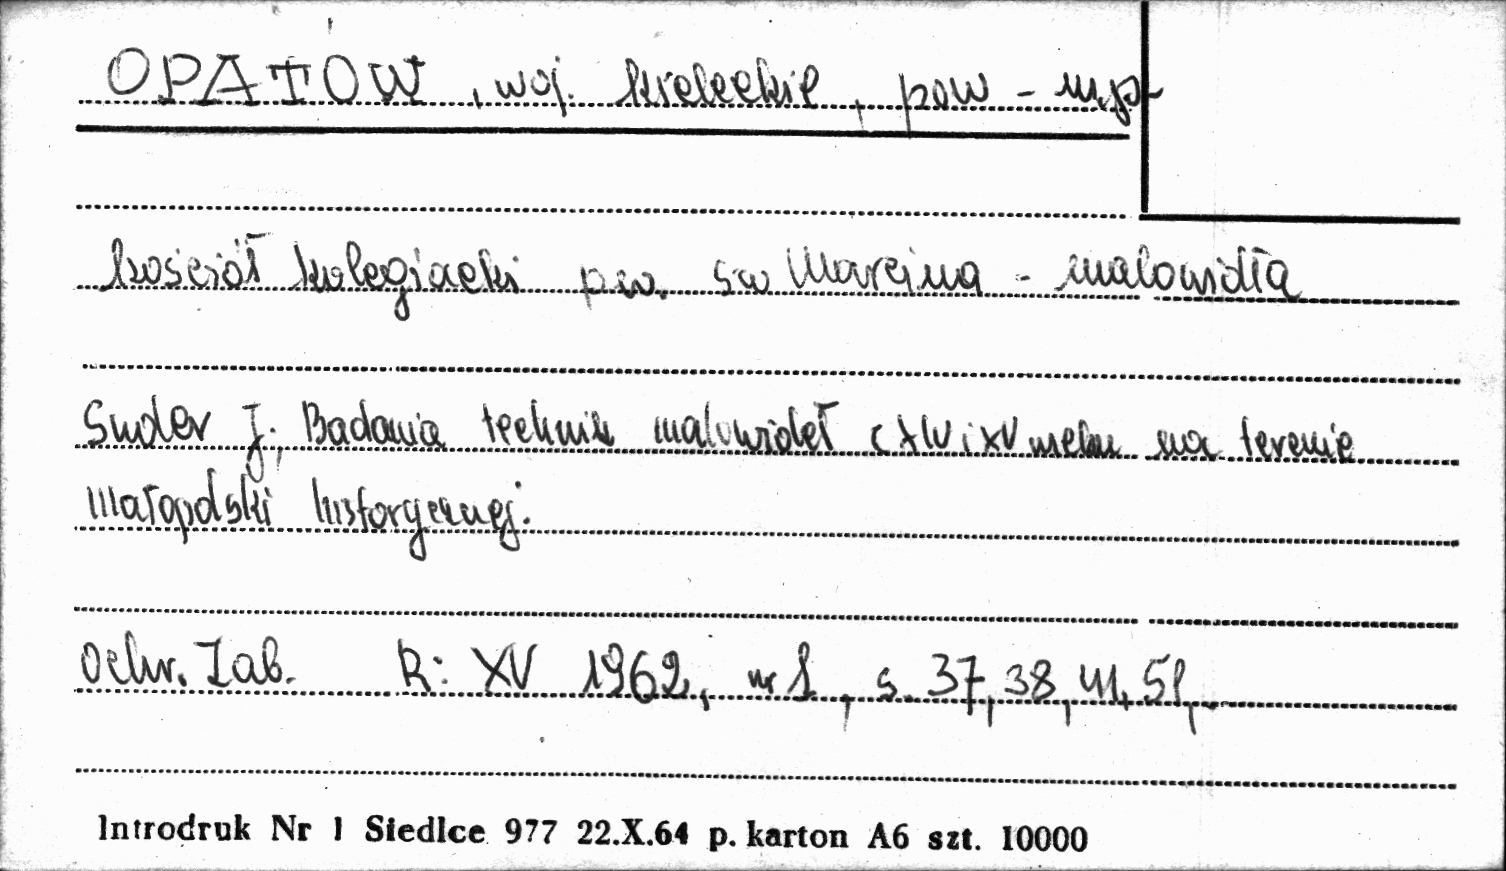 OPATOW, woj. kieleckie, pow - m.p-
kościół kolegiacki pw. św Marcina - malowidła
J., Badania technik malowideł XIV i XV wieku na terenie
Małopolski historycznej.
Ochr. Zab. R: XV 1962, nr 1, s. 37, 38, 41, 51,
Introdruk Nr 1 Siedlce 977 22.X.64 p. karton A6 szt. 10000